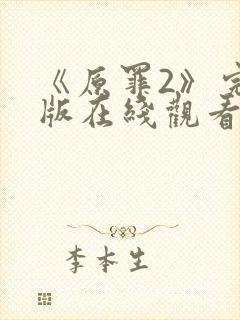 《原罪2》完
版在綫觀看
李本生